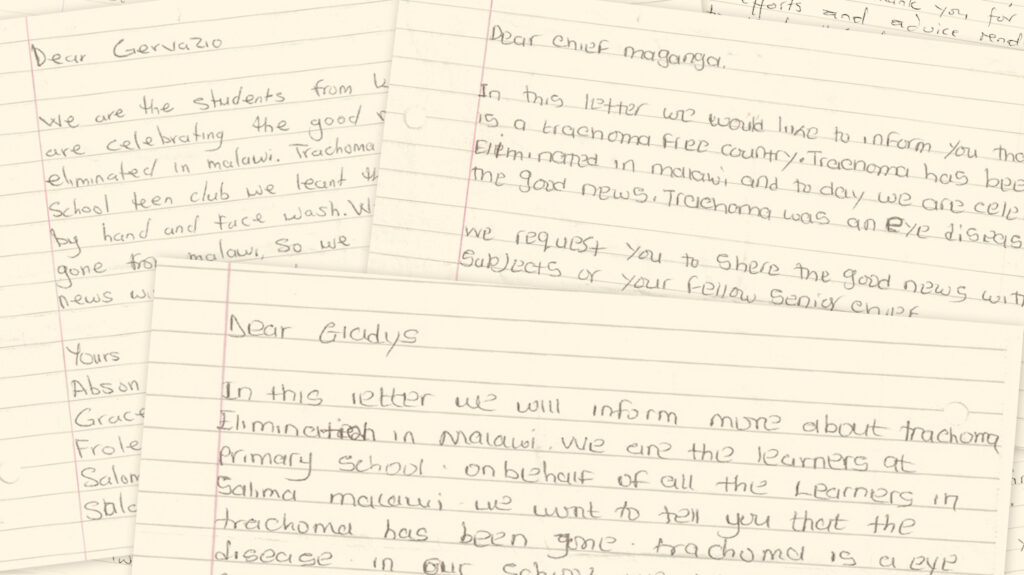 Dear Gervazio
We are the students from
are celebrating the good
eliminated in malawi. Trachoma
School teen club we leant
by hand and face wash. W
gone from malawi, So we
news
Yours
Abson
Grace
Frole
Salom
Dear chief maganga.
In this letter we would like to inform you tha
is a trachoma free country. Trachoma has bee
Eliminated in malawi and to day we are cele
the good news. Trachoma was an eye diseas
we request you to share the good news with
Subjects or your fellow senior chief
you, for
efforts and advice rend
Dear Gladys
In this letter we will inform more about trachoma
Elimination in Malawi. We are the learners at
primary school. on behalf of all the Learners in
Salima malawi. we want to tell you that the
trachoma has been gone. trachoma is a eye
disease. in our